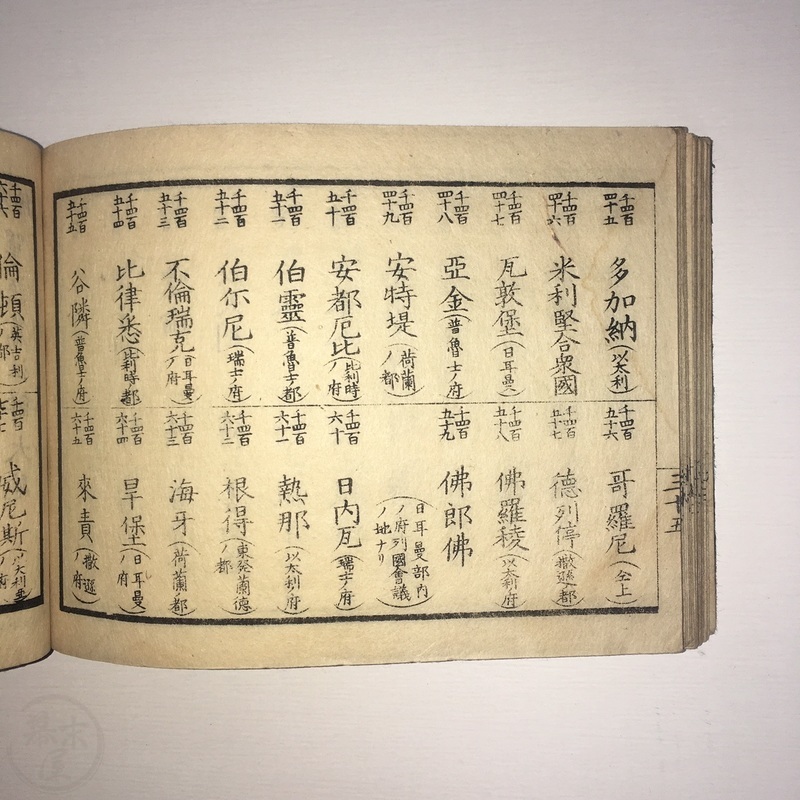 千四百四十五
多加納（以太利）
千四百四十六
米利堅合衆國
千四百四十七
瓦敦堡（日耳曼）
千四百四十八
亞金（普魯士ノ府）
千四百四十九
安特堤（荷蘭ノ都）
千四百五十
安都厄比（比利時ノ府）
千四百五十一
伯靈（普魯士ノ都）
千四百五十二
伯尓尼（瑞士ノ府）
千四百五十三
不倫瑞克（日耳曼ノ府）
千四百五十四
比律悉（比利時ノ都）
千四百五十五
谷隣（普魯士ノ府）
千四百五十六
哥羅尼（仝上）
千四百五十七
德列停（撒遜都）
千四百五十八
佛羅稜（以太利ノ府）
千四百五十九
佛郎佛
（日耳曼部内ノ府列國會議ノ地ナリ）
千四百六十
日内瓦（瑞士ノ府）
千四百六十一
熱那（以太利ノ府）
千四百六十二
根得（東發蘭德ノ都）
千四百六十三
海牙（荷蘭都）
千四百六十四
旱堡（日耳曼ノ府）
千四百六十五
來責（撒遜府）
三十五
倫頓（英吉利ノ都）
威尼斯